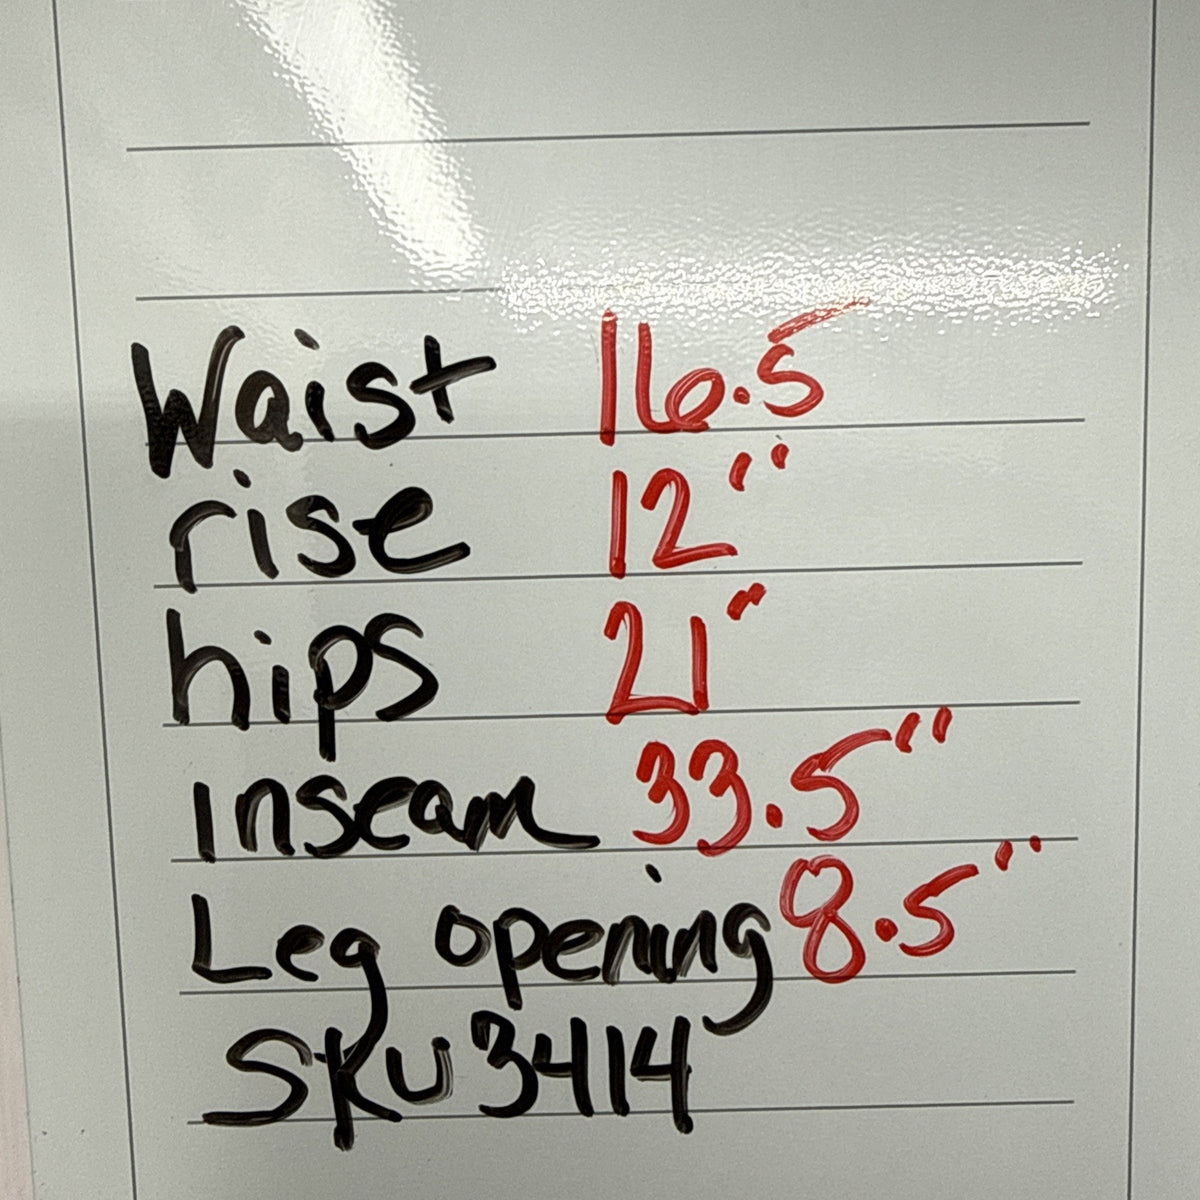 Waist 16.5
rise 12"
hips 21"
Inseam 33.5"
Leg opening 8.5"
SKU 3414